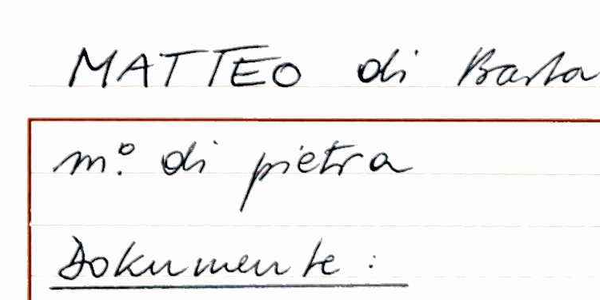 MATTEO di
m.º di pietra
Dokumente :